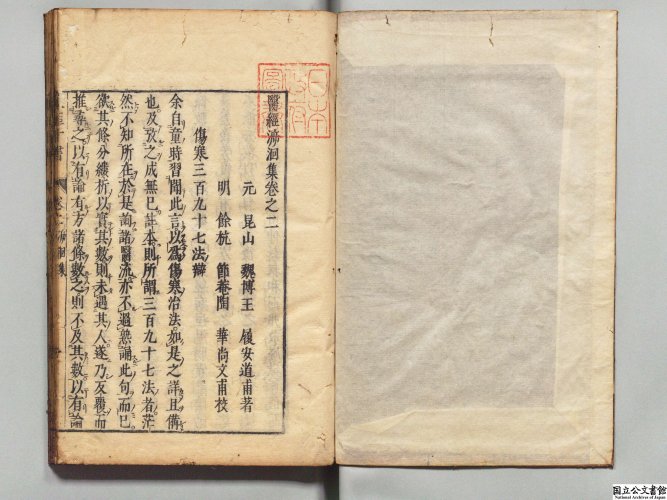 醫經泝洄集卷之二
元 崑山 魏博王 履安道甫著
明 餘杭 節菴陶 華尚文甫校
傷寒三百九十七法辯
余自童時習聞此言以爲傷寒治法如是之詳且備
也及攷之成無巳註本則所謂三百九十七法者茫
然不知所在於是詢諸醫流亦不過熟誦此句而巳
欲其條分縷析以實其數則未遇其人遂乃反覆而
推尋之以有論有方諸條數之則不及其數以有論
國立公文書館
National Archives of Japan